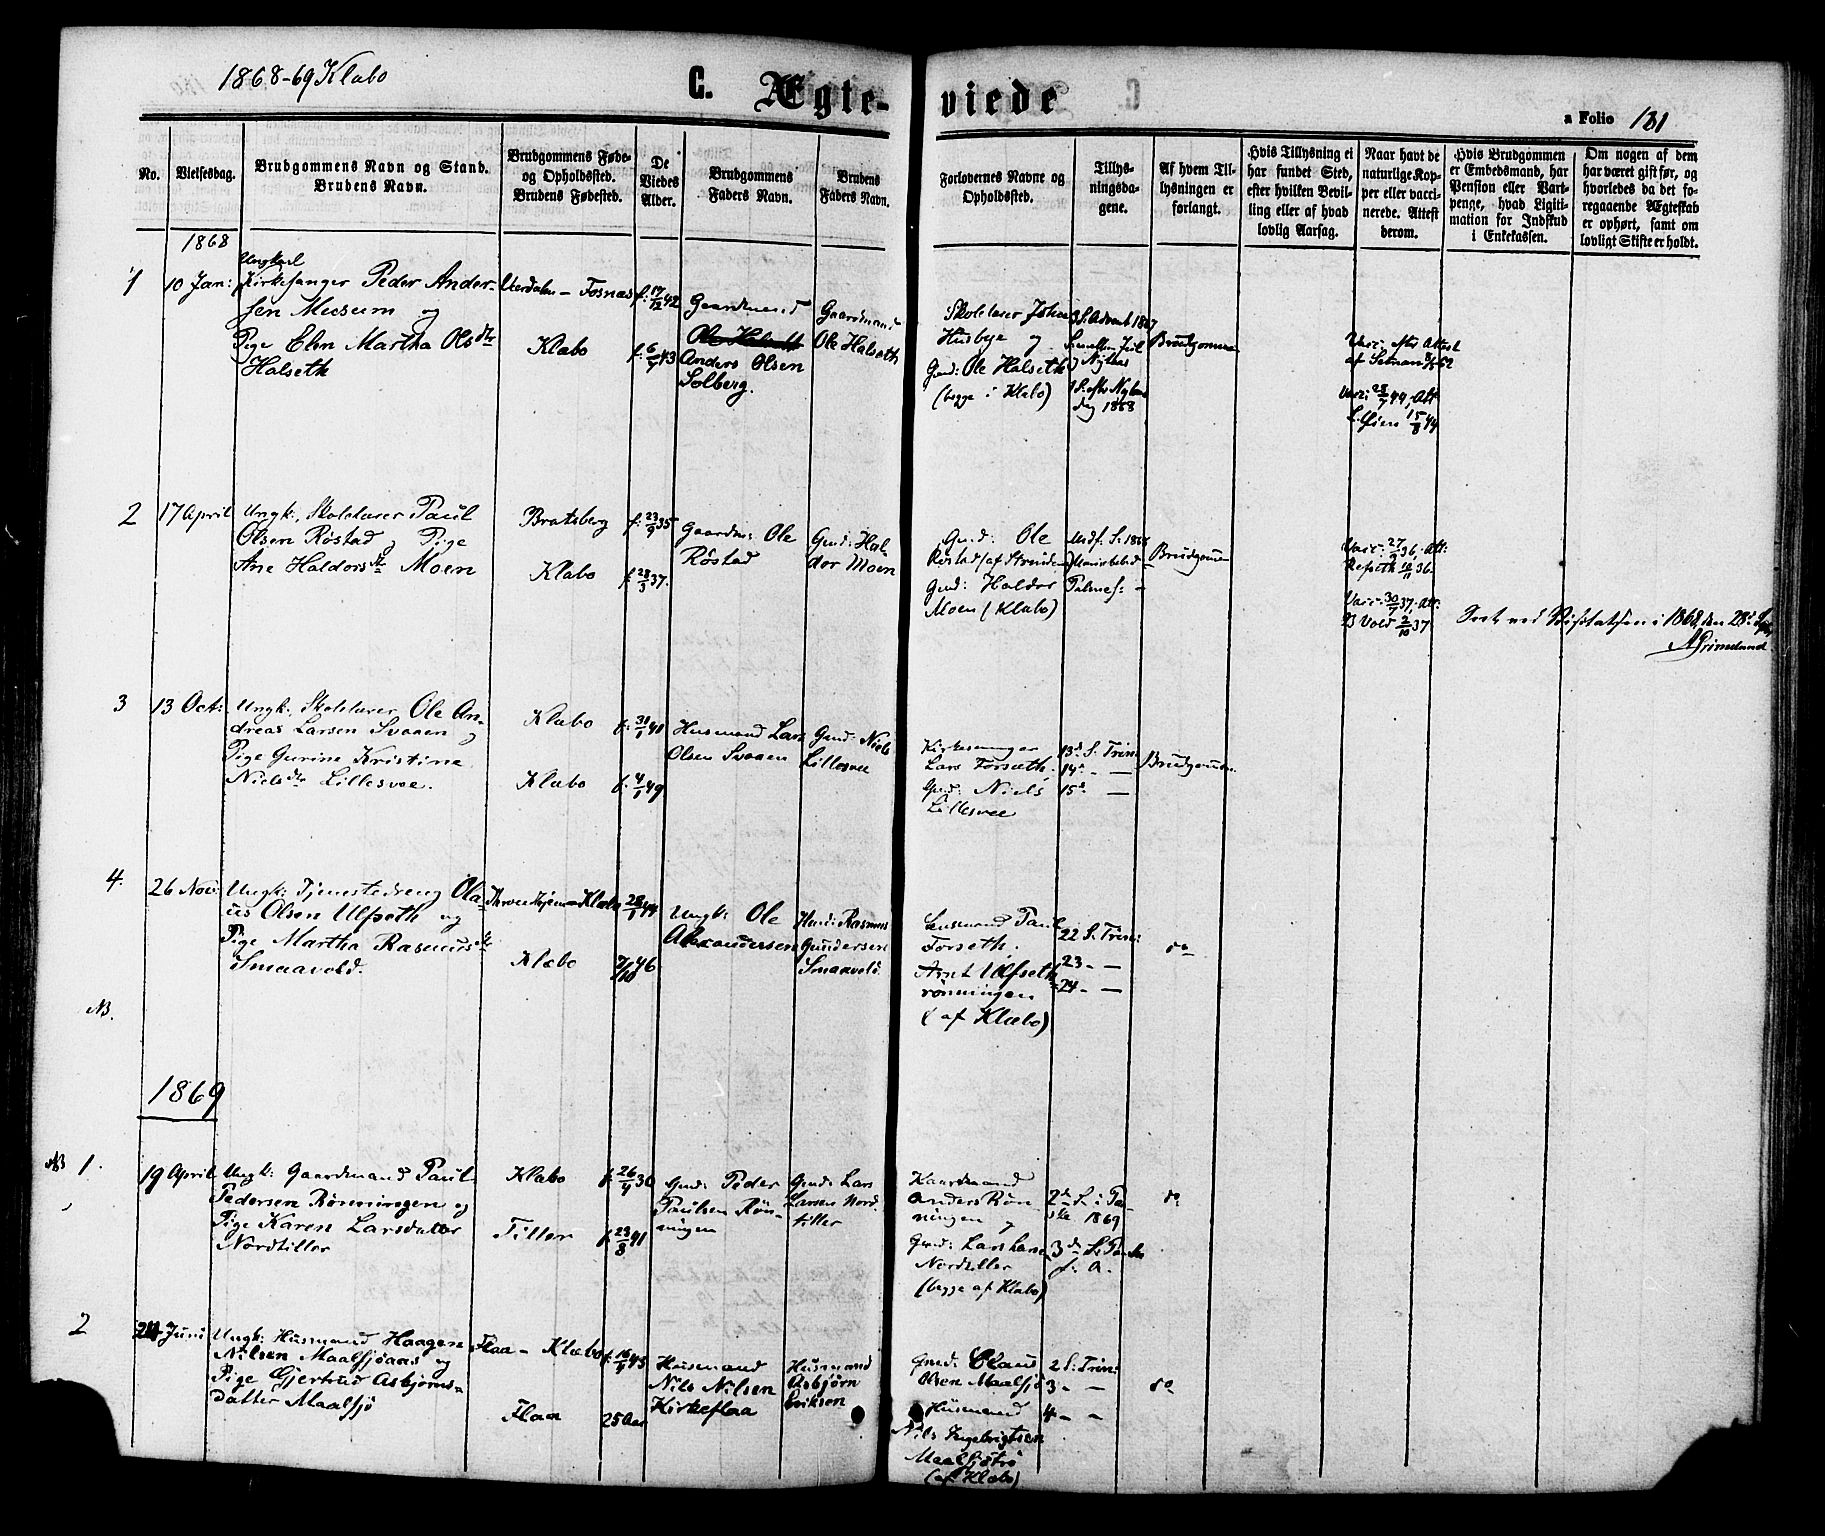 1868-69 Klæbo
C. Ægte-
viede
a Folio 181
No.
Vielsesdag.
Brudgommens Navn og Stand.
Brudens Navn.
Brudgommens Føde-
og Opholdssted.
Brudens Fødested.
De
Viedes
Alder.
Brudgommens
Faders Navn.
Brudens
Faders Navn.
Forlovernes Navne og
Opholdssted.
Tillys-
ningsda-
gene.
Af hvem Til-
lysningen er
forlangt.
Hvis Tillysning ei
har fundet Sted,
efter hvilken Bevil-
ling eller af hvad
lovlig Aarsag.
Naar havt de
naturlige Kop-
per eller vacci-
nerede. Attest
derom.
Hvis Brudgommen
er Embedsmand, har
Pension eller Vart-
penge, hvad Ligiti-
mation for Indskud
i Enkekassen.
Om nogen af dem
har været gift før, og
hvorledes da det fo-
regaaende Ægteskab
er ophørt, samt om
lovligt Skifte er holdt.
1868
1
10 Jan:
Ungkarl
Kirkesanger Peder Ander-
sen Musum og
Pige Elen Martha Olsdtr
Halseth
Værdalen - Fosnæs
Klæbo
f: 17/12 42
f: 6/9 43
Gaardmand
Ole Halseth
Anders Olsen
Solberg.
Gaardmand
Ole Halseth
Skolelærer Johan
Husbye og
Gmd: Ole Halseth
(begge i Klæbo)
3 S. Advent 1867
S. mellem Juul
Nytaar
1 S. efter Nytaars
dag 1868
Brudgommen
Vacc: Att:
28/7 44, Att:
15/8 44
2
17 April
Ungk:, Skolelærer Paul
Olsen Røstad og Pige
Ane Haldorsdtr Moen
Bratsberg
Klæbo
f: 23/9 35
f: 28/3 37.
Gaardm: Ole
Røstad
Gmd: Hal-
dor Moen
Gmd: Ole
Røstad (af Strinden)
Gmd: Haldor
Moen (Klæbo)
Midf. S. 1868
Mariæ bebud -
Palmes: -
Brudgommen
Vacc: 27/9 36, Att:
Refseth 10/11 36.
Vacc: 30/9 37, Att:
B Vold 2/10 37
Seet ved Visitatsen i 1868, den 28de
AGrimelund
3
13 Oct:
Ungk:, Skolelærer Ole An-
dreas Larsen Svaaen og
Pige Gurine Kristine
Nielsdtr Lillesvee.
Klæbo
Klæbo
f: 31/1 41
f: 4/1 49
Husmand Lars
Olsen Svaaen
Gmd: Niels
Lillesvee
Kirkesanger
Lars Forseth,
Gmd: Niels
Lillesvee
13de S. Trin:
14de - —
15de —
Brudgommen
4.
26 Nov:
Ungk: Tjenestedreng Ola-
us Olsen Ulfseth og
Pige Martha Rasmusdtr
Smaavold.
- Klæbo
Klæbo
28/1 44
7/10 46
Ungk: Ole
Alexandersen
Husmd: Rasmus
Gundersen
Smaavold
Lensmand Paul
Forseth.
Arnt Ulfseth-
rønningen
(af Klæbo)
22 S. Trin:
23 - —
24 - —
do
NB.
1869
NB 1.
19 April
Ungk: Gaardmand Paul
Pedersen Rønningen og
Pige Karen Larsdatter
Nordtiller
Klæbo
Tiller
f: 26/9 30
f: 23/8 41
Gmd: Peder
Paulsen Røn-
ningen
Gmd: Lars
Larsen Nord-
tiller
Gaardmand
Anders Røn-
ningen og
Gmd: Lars Larsen
Nordtiller
(begge af Klæbo)
2den S. i Paa-
ske 1869
3de S. i Paaske
s: A.
do
2
24 Juni
Ungk: Husmand Haagen
Nilsen Maalsjøaas og
Pige Gjertrud Asbjørns-
datter Maalsjø
Flaa - Klæbo
Flaa
f: 16/9 43
25 Aar
Husmand
Nils Nilsen
Kirkeflaa
Husmand
Asbjørn
Eriksen
Gmd: Claus
Olsen Maalsjø
Husmand
Nils Ingebrigtsen
Maalsjøtrø
(af Klæbo)
2 S. Trin:
3 - —
4 - -
do